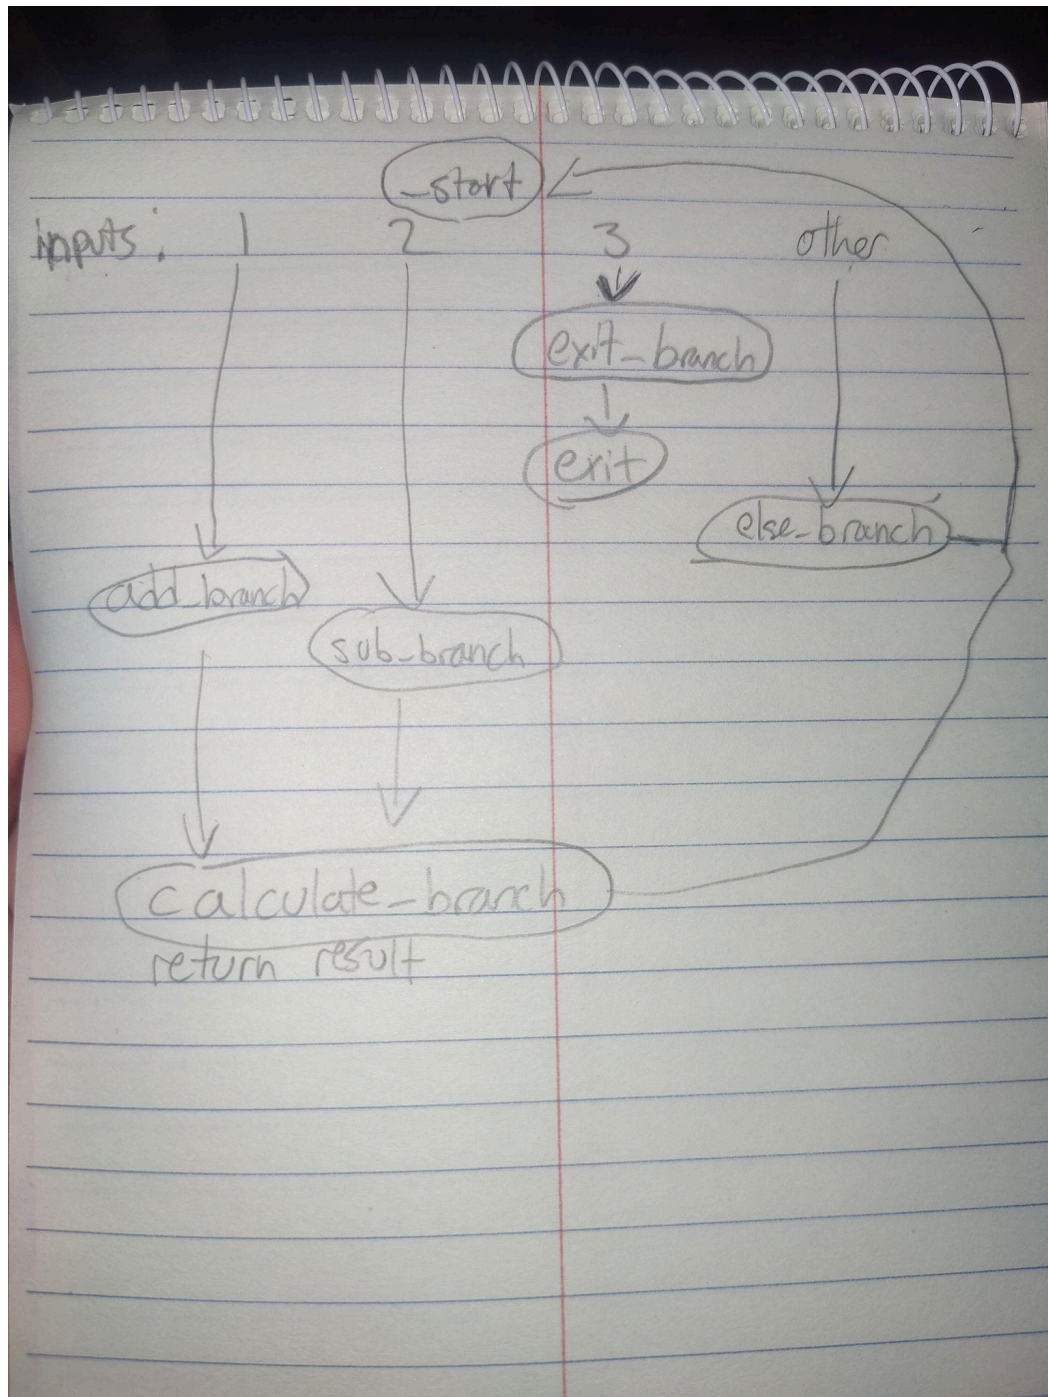 _start
inputs: 1 2 3 other
exit_branch
exit
else_branch
add_branch
sub_branch
calculate_branch
return result